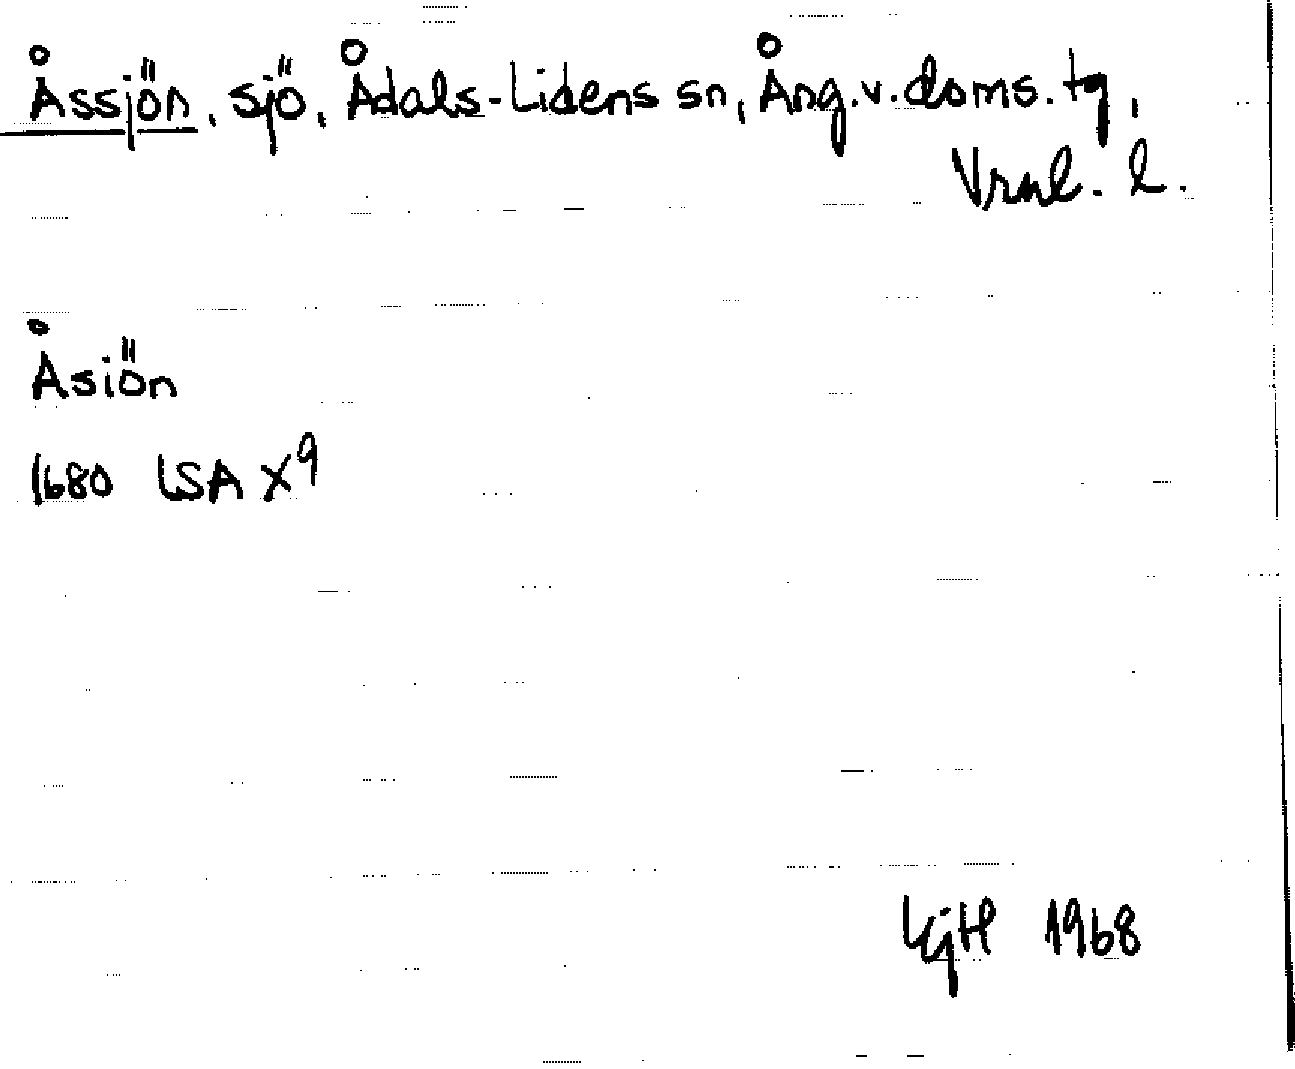 Åssjön, sjö, Ådals-Lidens sn, Ång.v.doms.tg,
Vrnl. l.
Åsiön
1680 LSA X9
1968